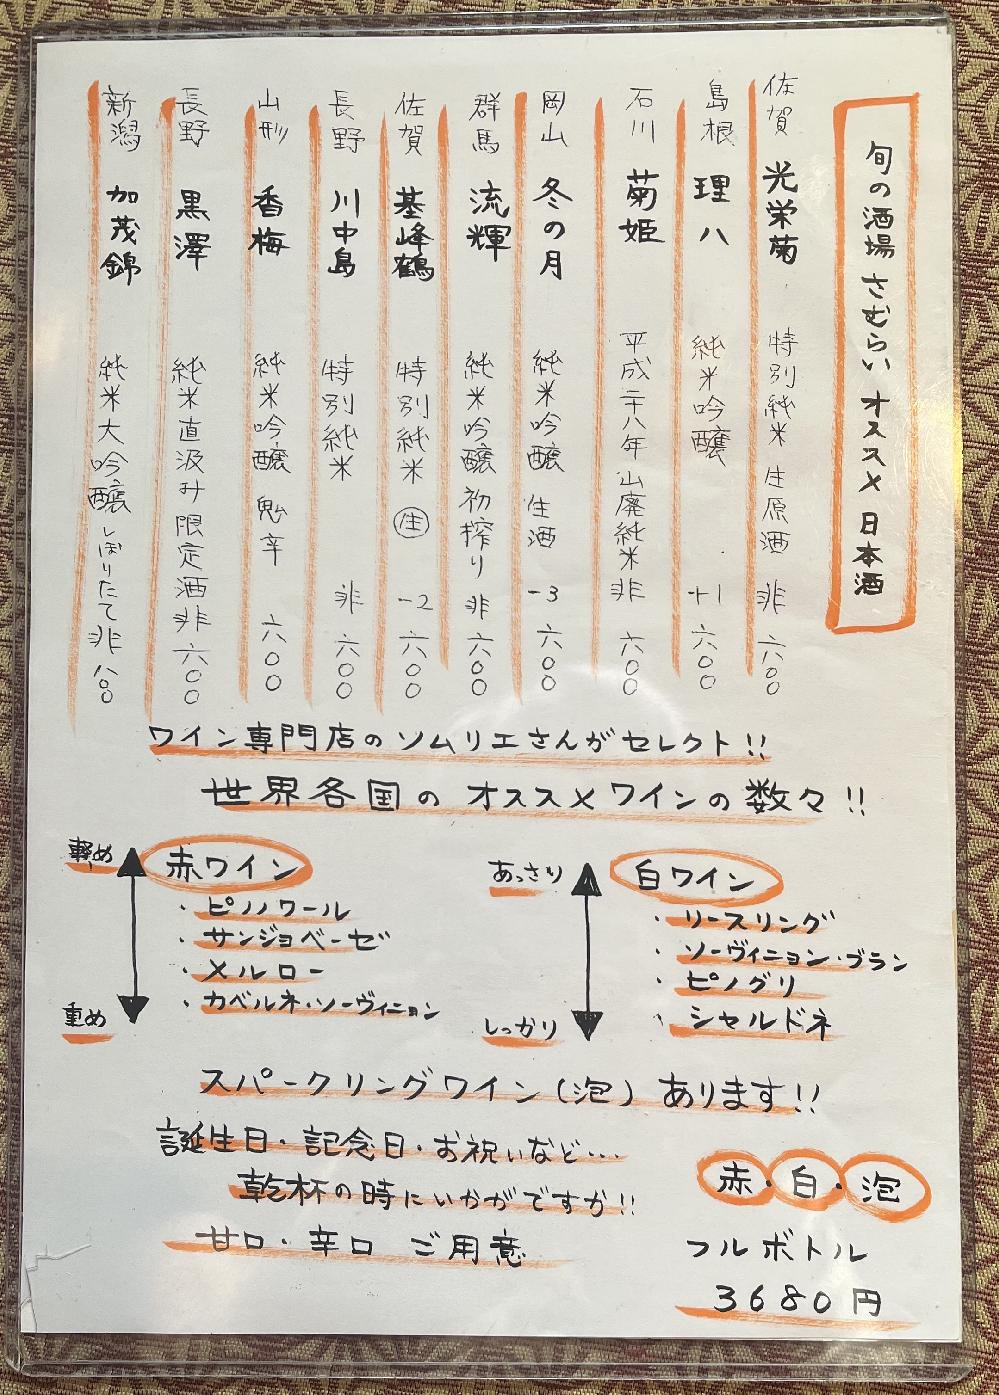 旬の酒場 さむらい オススメ 日本酒
佐賀 光栄菊 特別純米 生原酒 非 六〇〇
島根 理八 純米吟醸 +1 六〇〇
石川 菊姫 平成二十八年 山廃純米 非 六〇〇
岡山 冬の月 純米吟醸 生酒 -3 六〇〇
群馬 流輝 純米吟醸 初搾り 非 六〇〇
佐賀 基峰鶴 特別純米 生 -2 六〇〇
長野 川中島 特別純米 非 六〇〇
山形 香梅 純米吟醸 鬼辛 六〇〇
長野 黒澤 純米直汲み 限定酒 非 六〇〇
新潟 加茂錦 純米大吟醸 しぼりたて 非 八〇〇
ワイン専門店のソムリエさんがセレクト!!
世界各国の オススメワインの数々!!
軽め
赤ワイン
・ピノノワール
・サンジョベーゼ
・メルロー
・カベルネ・ソーヴィニョン
重め
あっさり
白ワイン
・リースリング
・ソーヴィニョン・ブラン
・ピノグリ
・シャルドネ
しっかり
スパークリングワイン(泡)あります!!
誕生日・記念日・お祝いなど…
乾杯の時にいかがですか!!
甘口・辛口 ご用意
赤・白・泡
フルボトル
3680円